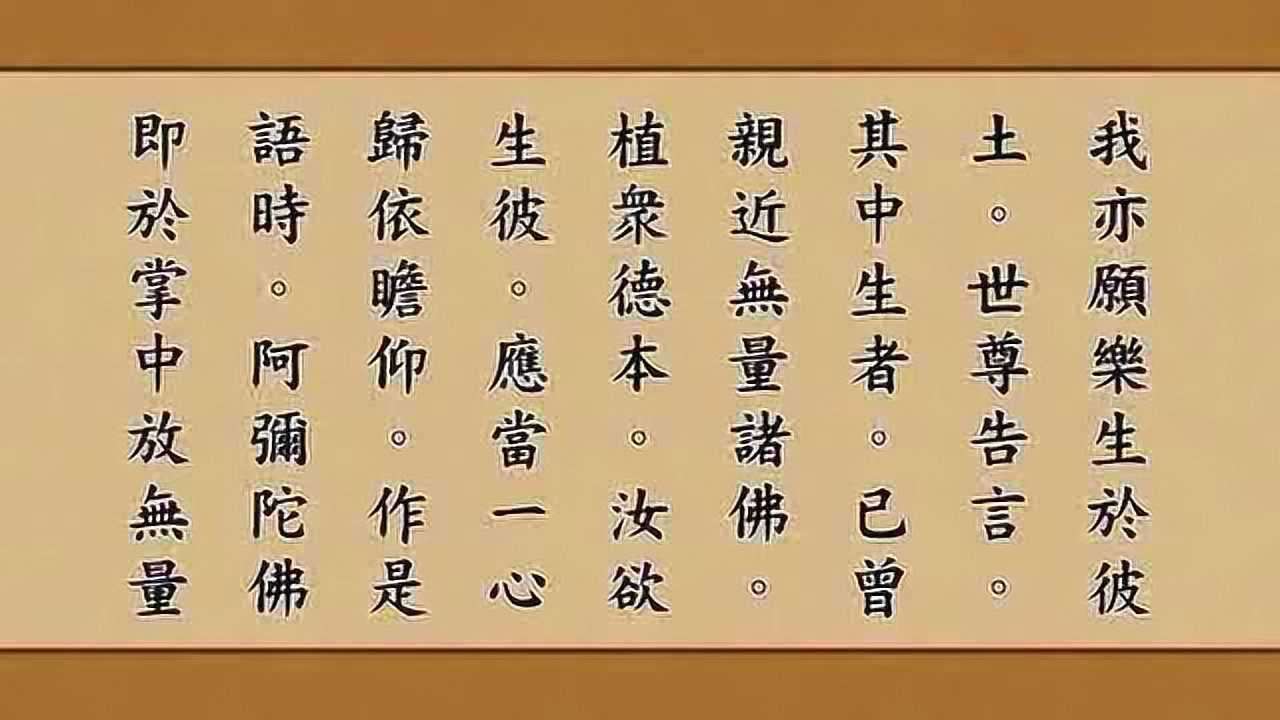 我亦願樂生於彼
土。世尊告言。
其中生者。已曾
親近無量諸佛。
植眾德本。汝欲
生彼。應當一心
歸依瞻仰。作是
語時。阿彌陀佛
即於掌中放無量